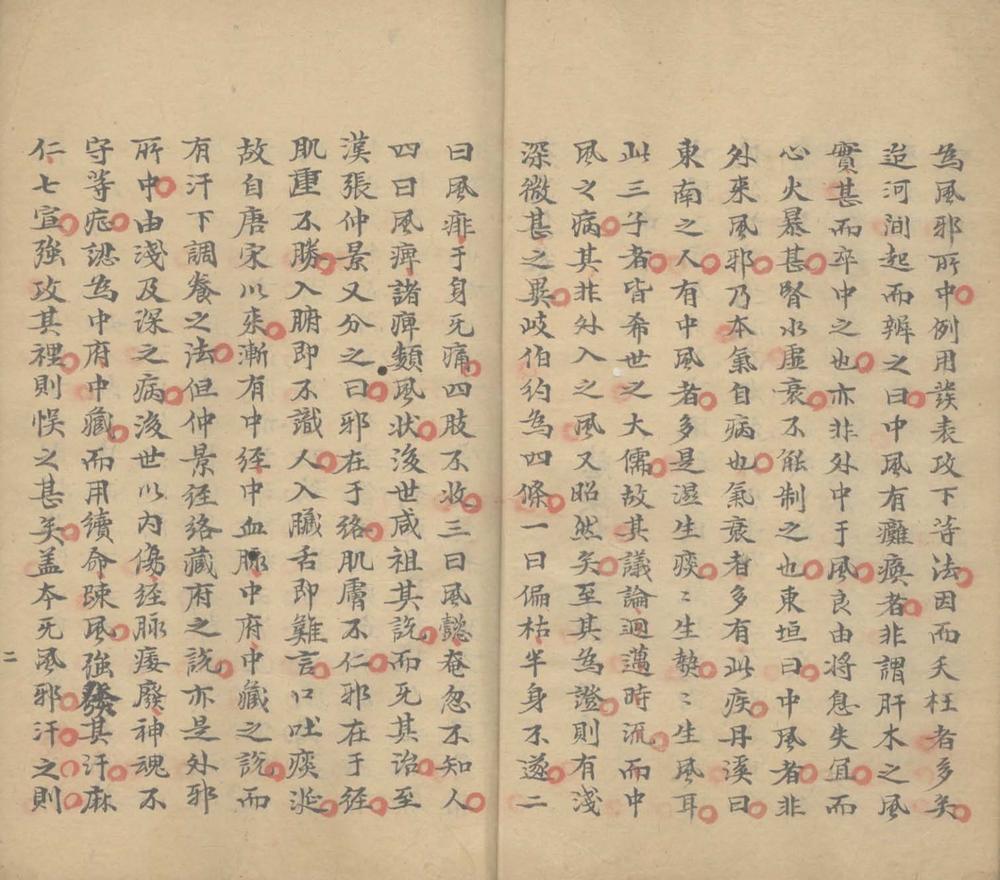 為風邪所中例用發表攻下等法因而夭枉者多矣
迨河澗起而辨之曰中風有癱瘓者非謂肝木之風
實甚而卒中之也亦非外中于風良由將息失宜而
心火暴甚腎水虛衰不能制之也東垣曰中風者非
外來風邪乃本氣自病也氣衰者多有此疾丹溪曰
東南之人有中風者多是濕生痰〻生熱〻生風耳
此三子者皆希世之大儒故其議論迥邁時流而中
風之病其非外入之風又昭然矣至其為證則有淺
深微甚之異岐伯約為四條一曰偏枯半身不遂二
曰風痱于身旡痛四肢不收三曰風懿奄忽不知人
四曰風痺諸痺類風狀後世咸祖其說而旡其治至
漢張仲景又分之曰邪在于絡肌膚不仁邪在于經
肌重不勝入腑即不識人入臟舌即難言口吐痰涎
故自唐宋以來漸有中經中血脉中府中藏之說而
有汗下調養之法但仲景經絡藏府之說亦是外邪
所中由淺及深之病後世以內傷經脉痿廢神魂不
守等症認為中府中臟而用續命踈風強發其汗麻
仁七宣強攻其裡則悞之甚矣盖本旡風邪汗之則
二